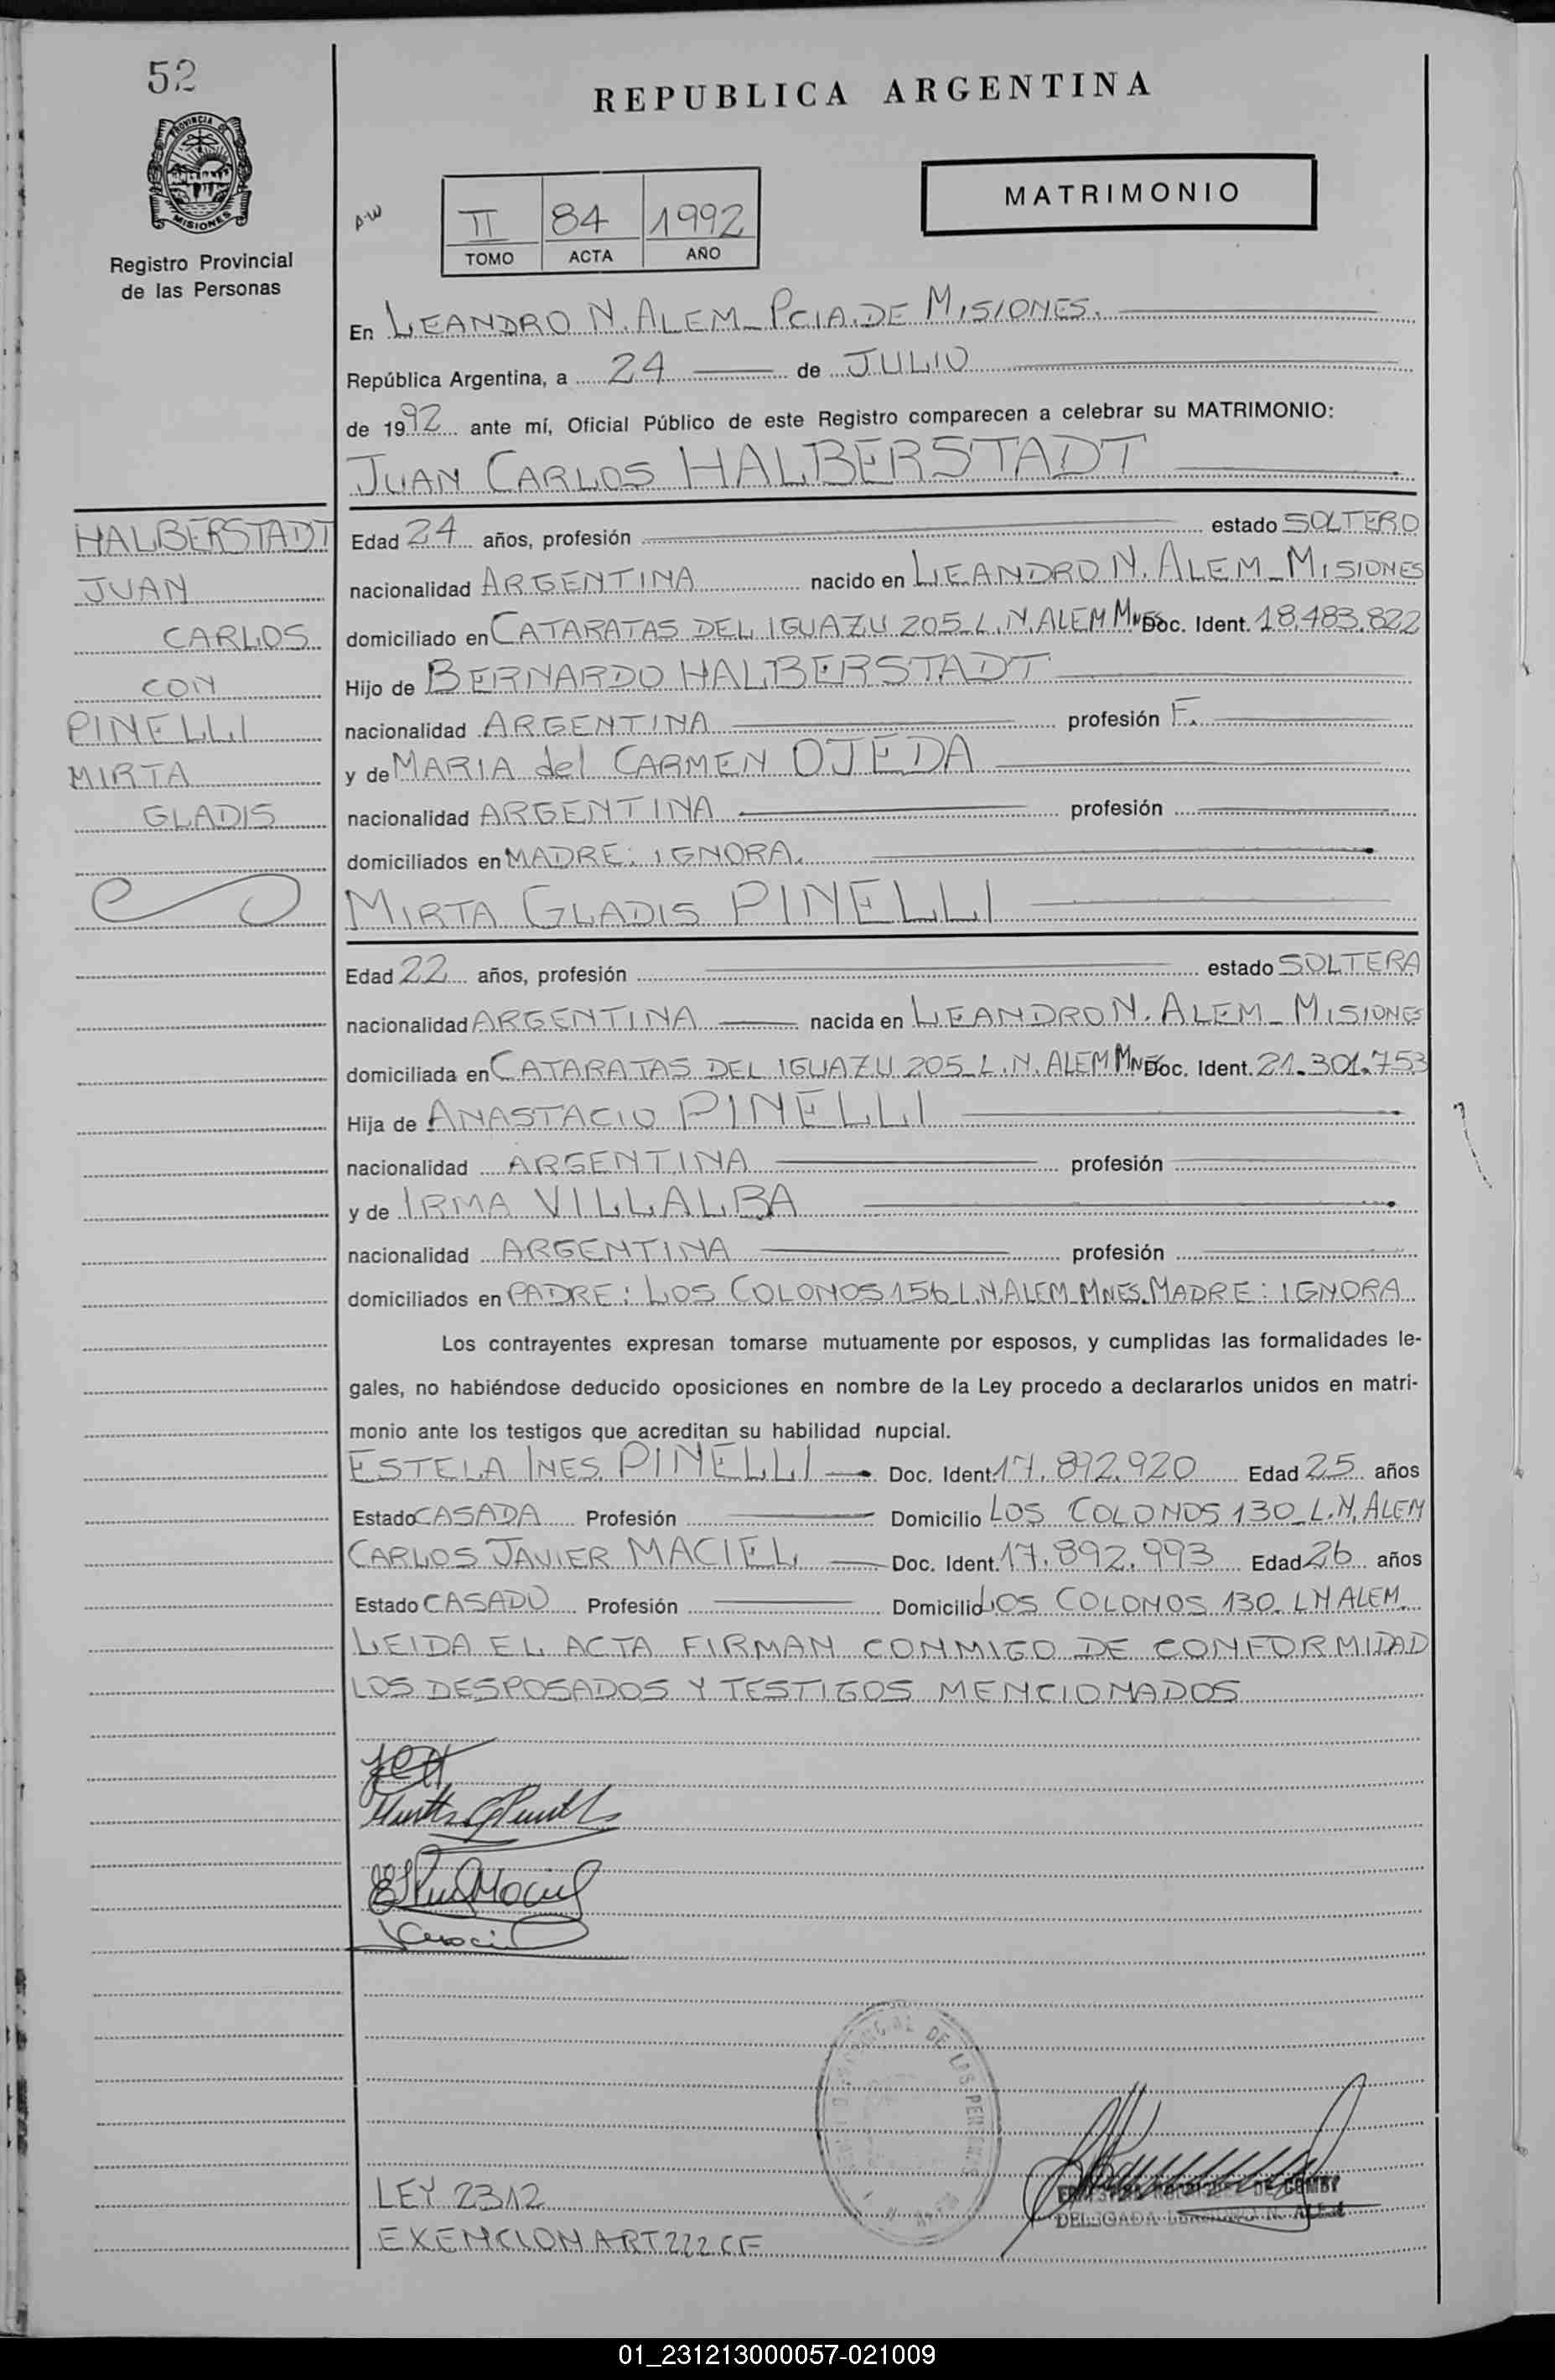 52
PROVINCIA DE
MISIONES
Registro Provincial
de las Personas
REPUBLICA ARGENTINA
MATRIMONIO
II 84 1992
TOMO ACTA AÑO
En LEANDRO N. ALEM_ PCIA. DE MISIONES.
República Argentina, a 24 de JULIO
de 1992 ante mí, Oficial Público de este Registro comparecen a celebrar su MATRIMONIO:
JUAN CARLOS HALBERSTADT
HALBERSTADT
JUAN
CARLOS
CON
PINELLI
MIRTA
GLADIS
Edad 24 años, profesión estado SOLTERO
nacionalidad ARGENTINA nacido en LEANDRO N. ALEM_ MISIONES
domiciliado en CATARATAS DEL IGUAZU 205_L.N.ALEM MNES Doc. Ident. 18.483.822
Hijo de BERNARDO HALBERSTADT
nacionalidad ARGENTINA profesión F.
y de MARIA del CARMEN OJEDA
nacionalidad ARGENTINA profesión
domiciliados en MADRE: IGNORA.
MIRTA GLADIS PINELLI
Edad 22 años, profesión estado SOLTERA
nacionalidad ARGENTINA nacida en LEANDRO N. ALEM_ MISIONES
domiciliada en CATARATAS DEL IGUAZU 205_L.N.ALEM MNES Doc. Ident. 21.301.753
Hija de ANASTACIO PINELLI
nacionalidad ARGENTINA profesión
y de IRMA VILLALBA
nacionalidad ARGENTINA profesión
domiciliados en PADRE: LOS COLONOS 156_L.N.ALEM_MNES. MADRE: IGNORA
Los contrayentes expresan tomarse mutuamente por esposos, y cumplidas las formalidades le-
gales, no habiéndose deducido oposiciones en nombre de la Ley procedo a declararlos unidos en matri-
monio ante los testigos que acreditan su habilidad nupcial.
ESTELA INES PINELLI Doc. Ident. 17.892.920 Edad 25 años
Estado CASADA Profesión Domicilio LOS COLONOS 130_L.N.ALEM
CARLOS JAVIER MACIEL Doc. Ident. 17.892.993 Edad 26 años
Estado CASADO Profesión Domicilio LOS COLONOS 130_ L N ALEM.
LEIDA EL ACTA FIRMAN CONMIGO DE CONFORMIDAD
LOS DESPOSADOS Y TESTIGOS MENCIONADOS
DE LAS
DELEGADA LEANDRO N. ALEM
LEY 2312
EXENCION ART 222 CF
01_231213000057-021009